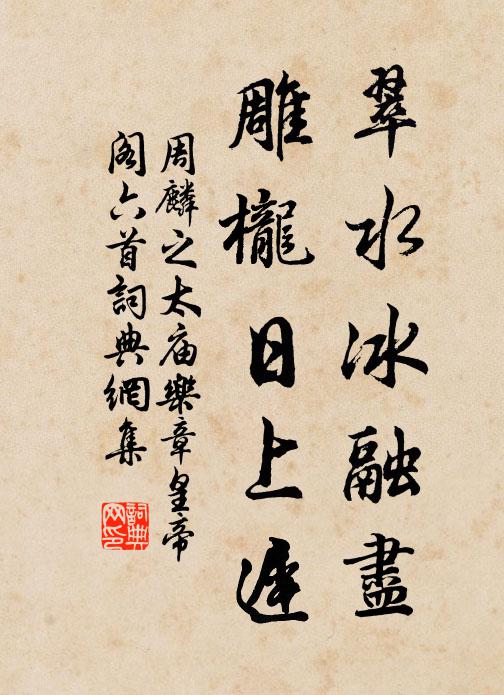 翠水冰融盡
雕櫳日上遲
周麟之太廟樂章皇帝
閣六首詞典網集
詞典
网印